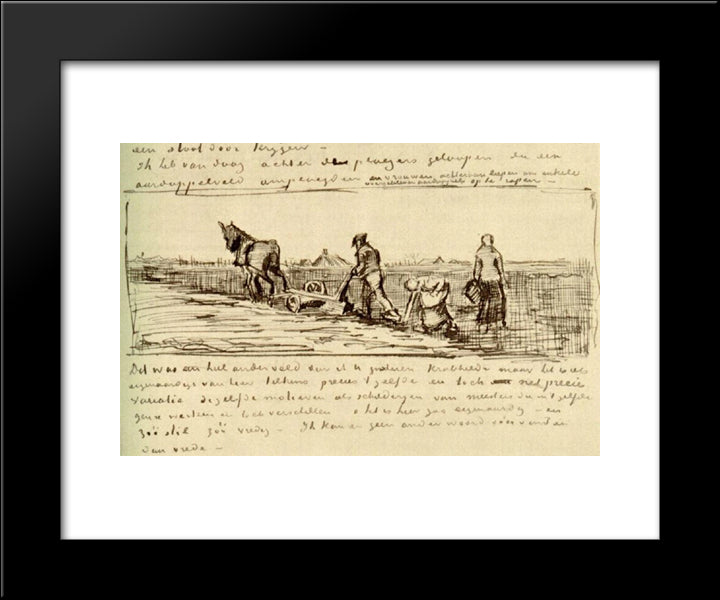 een stoot door krygen –
Ik heb van daag achter de ploegers geloopen die een
aardappelveld omploegden en vrouwen achteraan liepen om enkele
overgebleven aardappels op te rapen –
Dit was een heel ander veld dan ik U gisteren krabbelde maar het is iets
eigenaardigs van hier telkens precies t zelfde en toch net precies
variatie dezelfde motieven als schilderyen van meesters die in t zelfde
genre werken en toch verschillen o het is hier zoo eigenaardig – en
zóó stil zóó vredig – Ik kan er geen ander woord voor vinden
dan vrede –